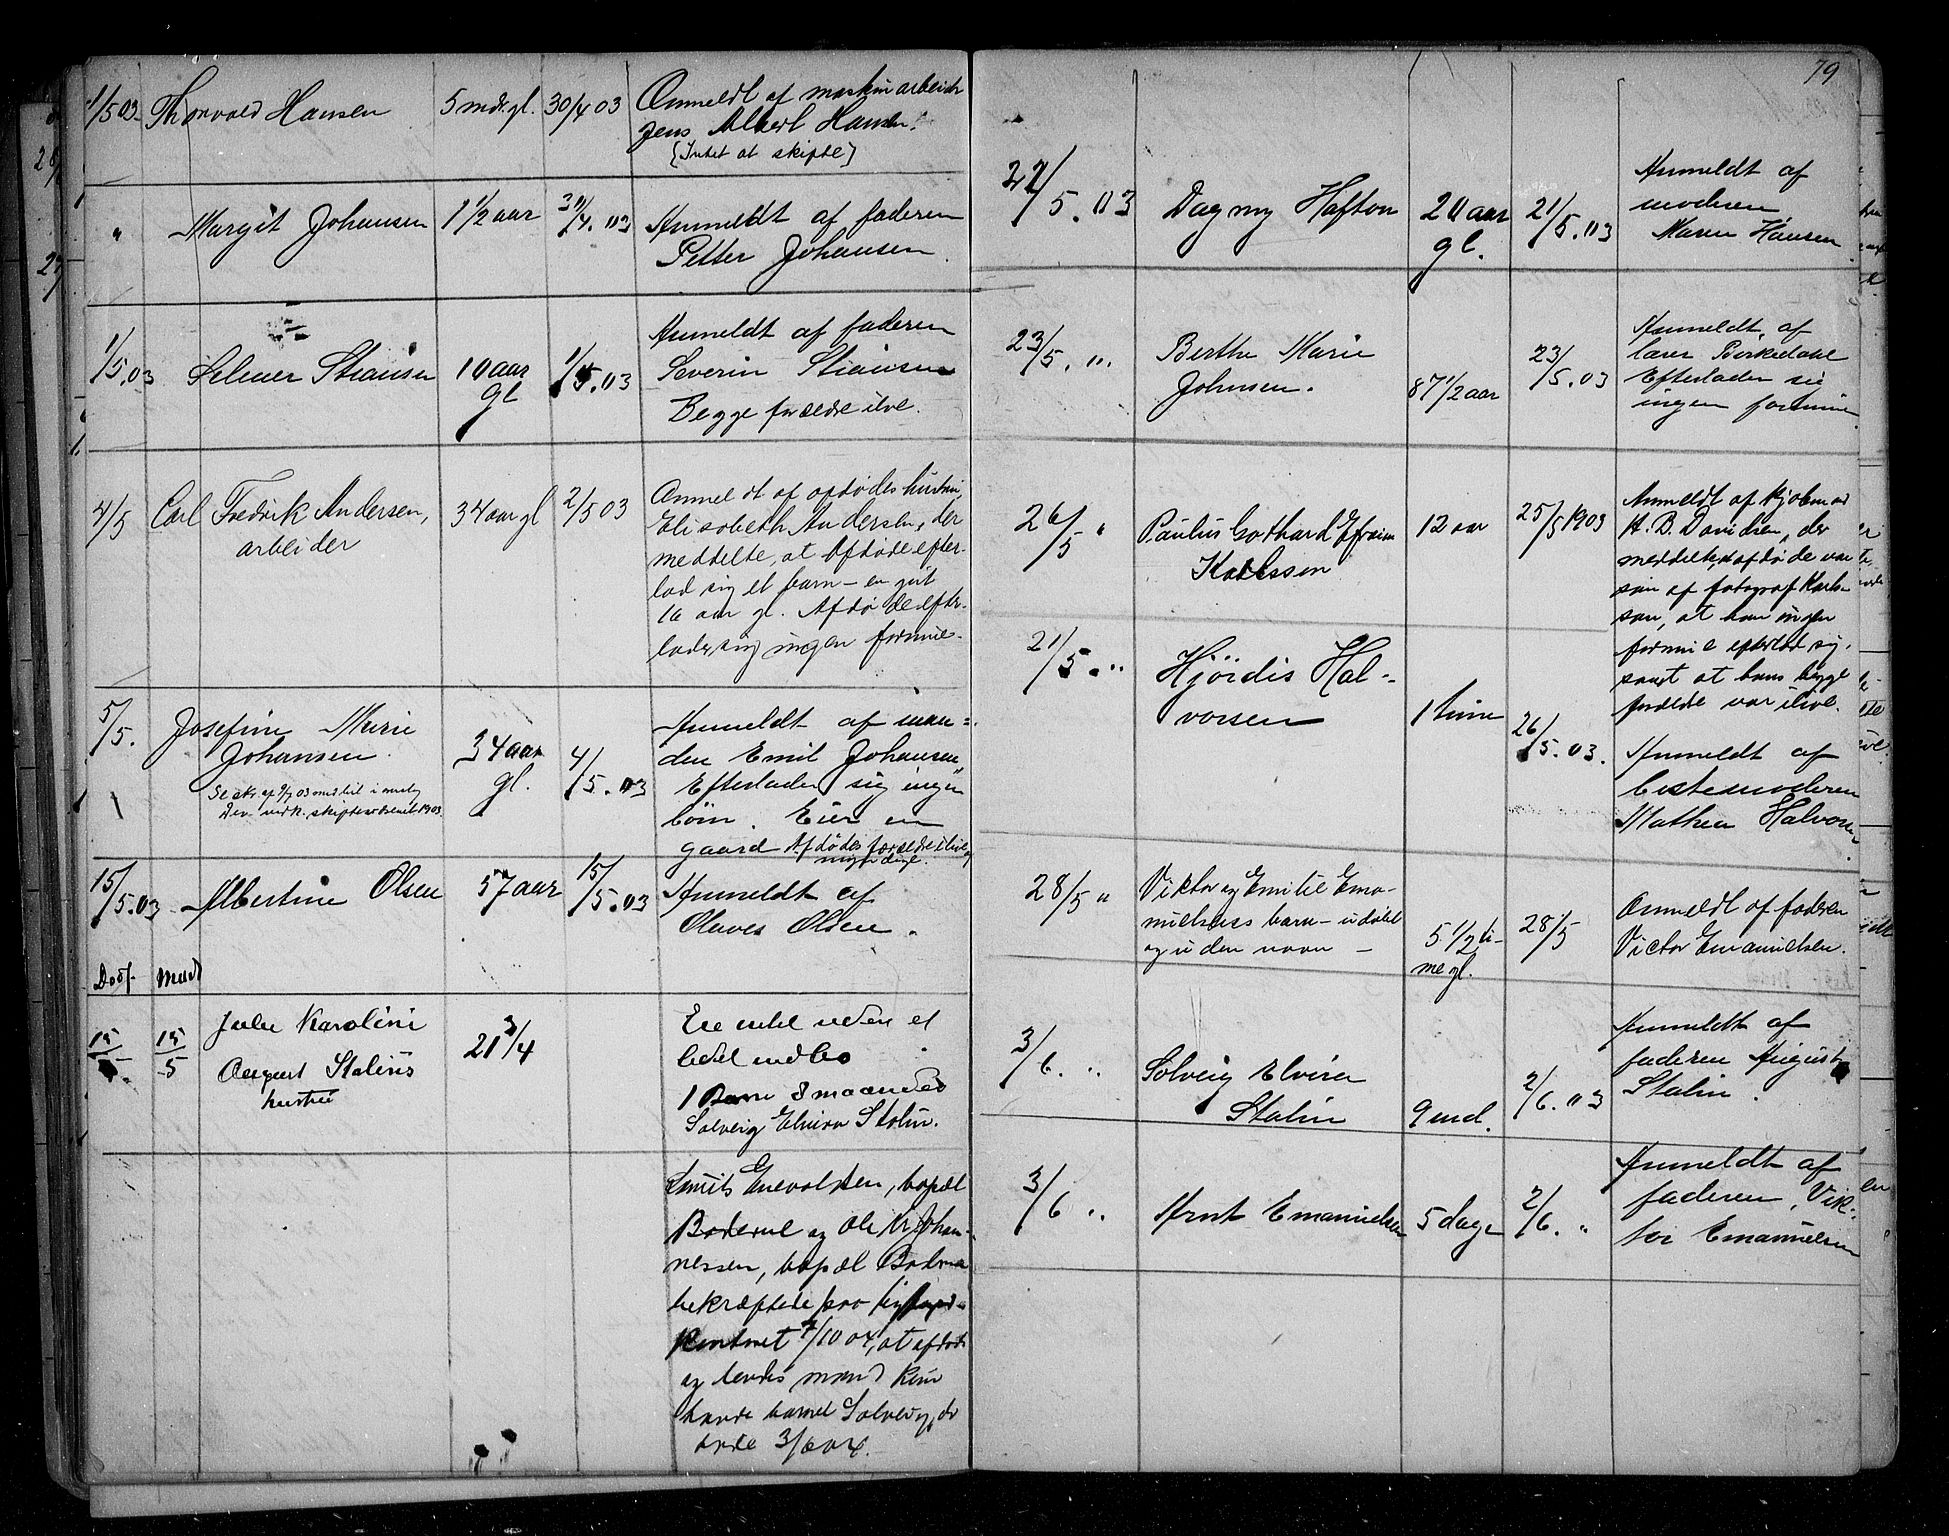 1/5 03. Thorvald Hansen 5 mdr. gl. 30/4 03 Anmeldt af maskinarbeider
Jens Albert Hansen.
(Intet at skifte)
" Margit Johansen 1 1/2 aar 30/4. 03 Anmeldt af faderen
Petter Johansen.
Anmeldt af faderen
1/5.03 Selmer Stiansen 10 aar 1/5.03 Severin Stiansen
gl Begge forældre ilve.
4/5 Carl Fredrik Andersen, 34 aar gl 2/5 03 Anmeldt af afdødes hustru,
arbeider Elisabeth Andersen, der
meddelte, at Afdøde efter-
lod sig et barn – en gut
16 aar gl. Afdøde efter-
lader sig ingen formue.
5/5. Josefine Marie Anmeldt af man-
Johansen. 34 aar 4/5.03 den Emil Johansen,
gl. Efterlader sig ingen
børn. Eier en
gaard Afdødes forældre ilive og
myndige.
15/5.03 Albertine Olsen 57 aar 15/5.03 Anmeldt af
Olaves Olsen.
Dødf. Meldt
15/5 15/5 Julie Karoline 21 3/4 Eie intet uden et
August Stalins lidet indbo.
hustru 1 Barn 8 maaneder
Solveig Elvira Stalin.
Enevoldsen, bopæl
og Ole Kr. Johan-
nessen, bopæl
bekræftede paa
Kontoret 7/10 04, at afdøde
og hendes mand kun
havde barnet Solveig, der
døde 3/6 03.
79
22/5.03 Dagny Hafton 20 aar 21/5.03 Anmeldt af
gl. moderen
Maren Hansen.
23/5. " Berthe Marie 87 1/2 aar 23/5.03 Anmeldt af
Johnsen. lærer Birkedahl
Efterlader sig
ingen formue.
26/5 " Paulus Gothard Efraim 12 aar 25/5 1903 Anmeldt af Kjøbmand
Karlsson H. B. Davidsen, der
meddelte, at afdøde var
søn af fotograf Karls-
son, at han ingen
formue efterlod sig,
samt at hans begge
forældre var ilive.
21/5. " Hjördis Hal-
vorsen 1 time 26/5.03. Anmeldt af
bestemoderen
Mathea Halvorsen.
28/5 " Viktor og Emilie Ema-
nuelsens barn – udøbt 5 1/2 ti- 28/5 Anmeldt af faderen
og uden navn – me gl. Victor Emanuelsen.
3/6. " Solveig Elvira Anmeldt af
Stalin 9 md. 2/6.03 faderen August
Stalin.
3/6 " Arnt Emanuelsen 5 dage 2/6. " Anmeldt af
faderen, Vik-
tor Emanuelsen